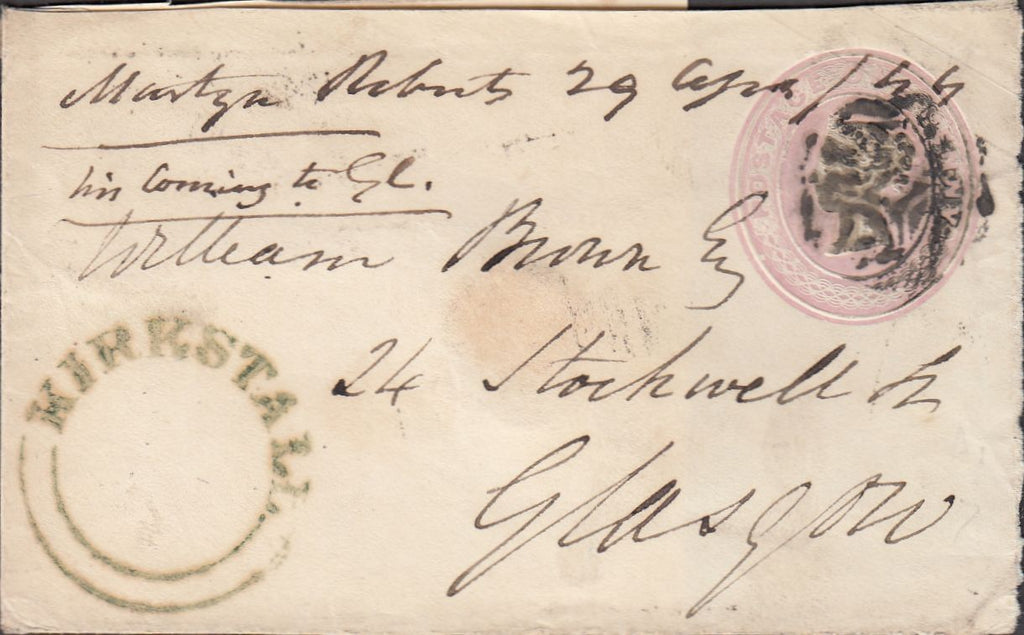 Martyn Roberts 29 Apr/44
his Coming to Gl.
William Brown Esq
24 Stockwell St
Glasgow
KIRKSTALL
POSTAGE
PENNY